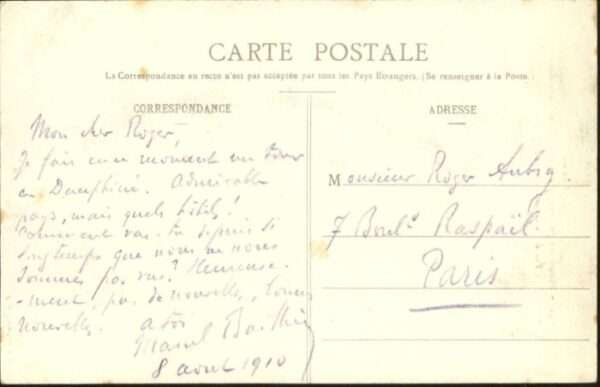 CARTE POSTALE
La Correspondance au recto n'est pas acceptée par tous les Pays Etrangers. (Se renseigner à la Poste.)
CORRESPONDANCE
Mon cher Roger,
Je fais en ce moment un tour
en Dauphiné. Admirable
pays, mais quels hôtels!
Comment vas-tu depuis si
longtemps que nous ne nous
sommes pas vus? Heureuse-
-ment, pas de nouvelles, bonnes
nouvelles.
à toi
Marcel
8 août 1910
ADRESSE
Monsieur Roger Aubry
7 Boul.d Raspail.
Paris